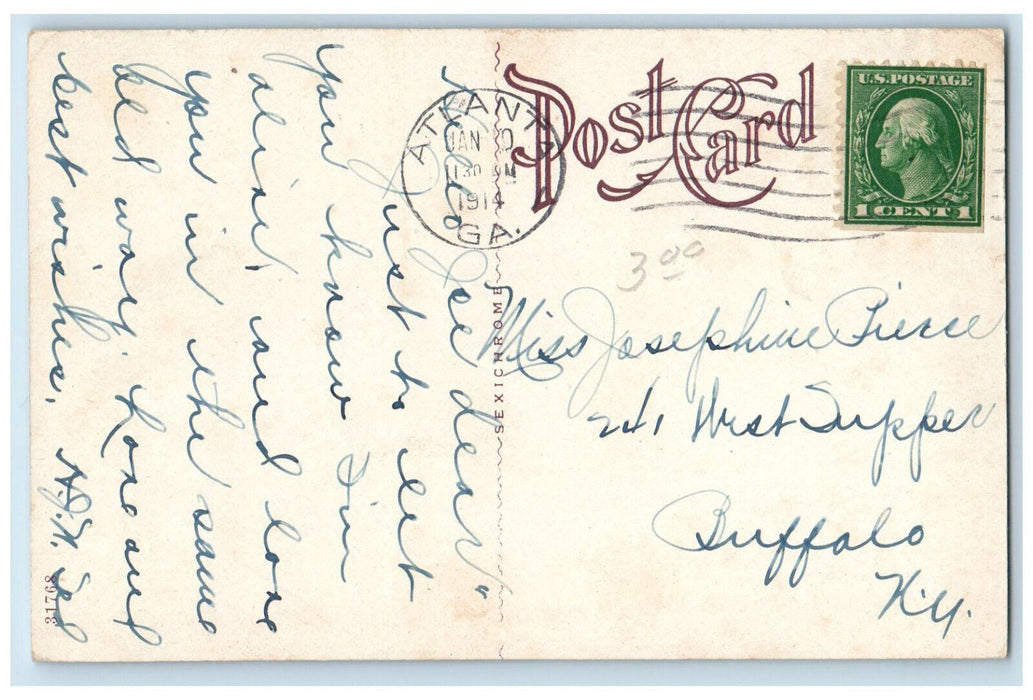 Post Card
U.S. POSTAGE
1 CENT 1
ATLANTA
JAN 30
1130 PM
1914
GA.
300
SEXICHROME
31768
Miss Josephine Pierce
241 West Tupper
Buffalo
N.Y.
"Hello Joe dear"
Just to let
you know I'm
alive and love
you in the same
old way. Love and
best wishes.